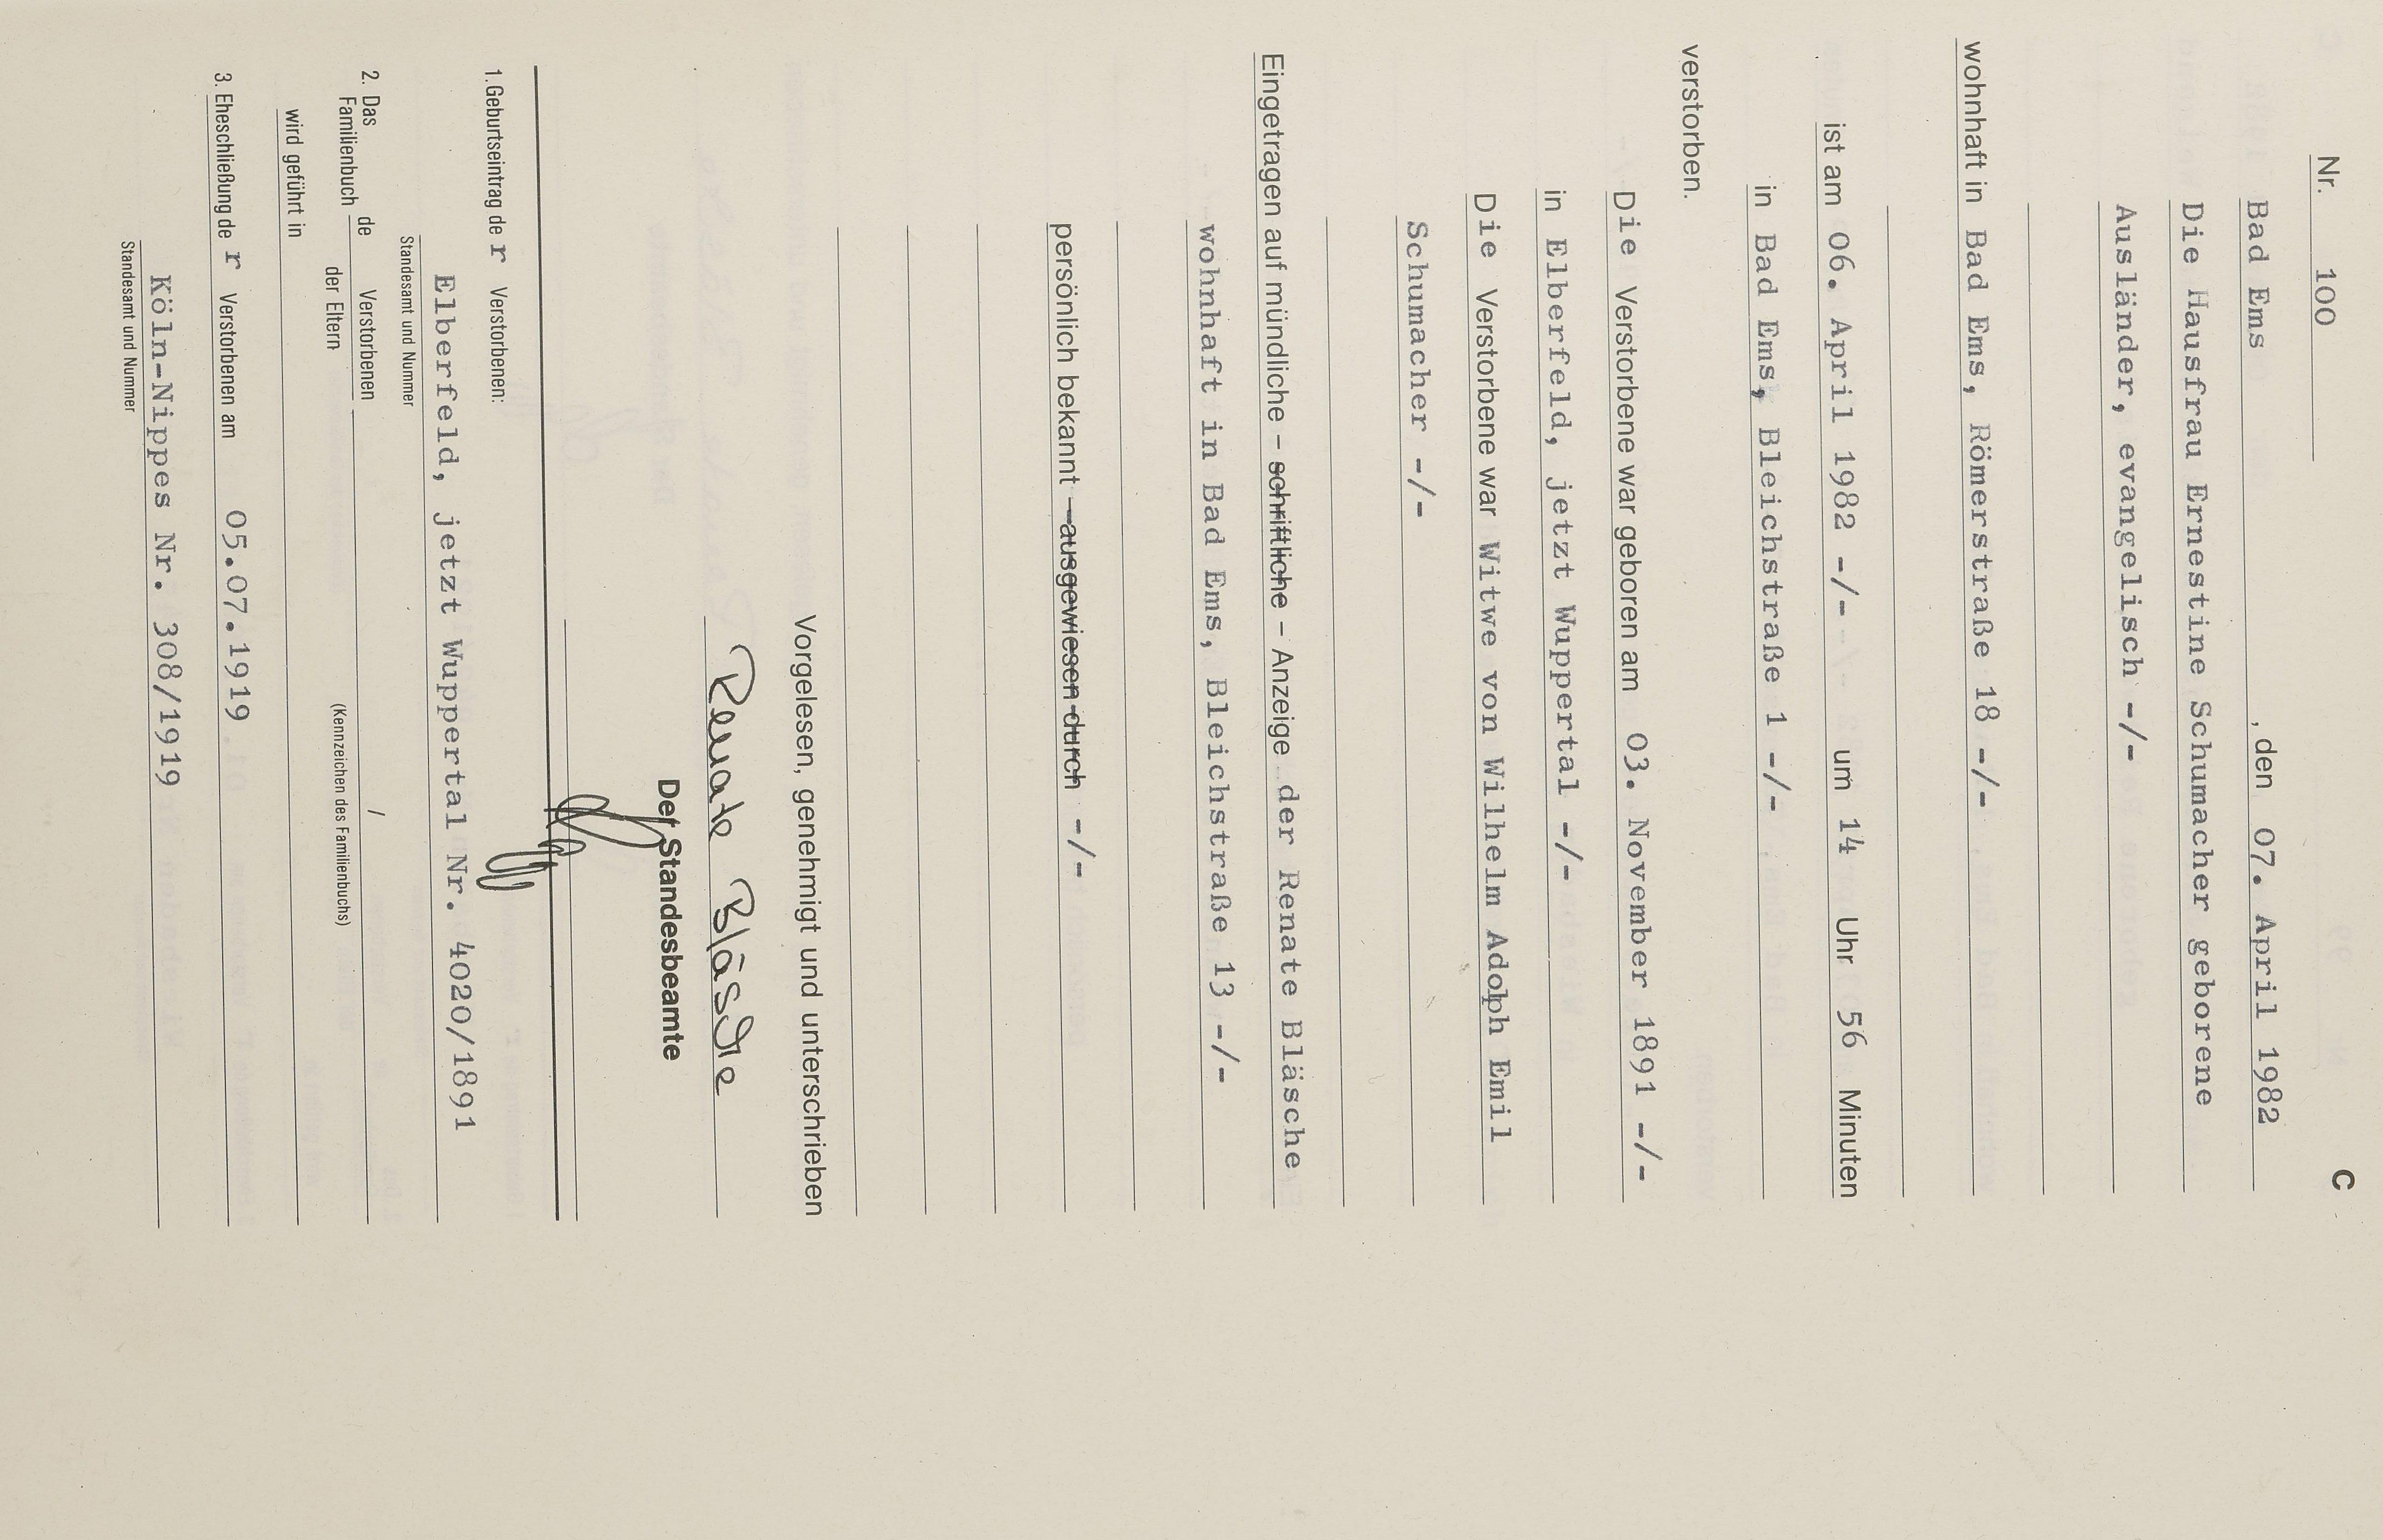 C
Nr. 100
Bad Ems , den 07. April 1982
Die Hausfrau Ernestine Schumacher geborene
Ausländer, evangelisch -/-
wohnhaft in Bad Ems, Römerstraße 18 -/-
ist am 06. April 1982 -/- um 14 Uhr 56 Minuten
in Bad Ems, Bleichstraße 1 -/-
verstorben.
Die Verstorbene war geboren am 03. November 1891 -/-
in Elberfeld, jetzt Wuppertal -/-
Die Verstorbene war Witwe von Wilhelm Adolph Emil
Schumacher -/-
Eingetragen auf mündliche – schriftliche – Anzeige der Renate Bläsche
wohnhaft in Bad Ems, Bleichstraße 13 -/-
persönlich bekannt – ausgewiesen durch -/-
Vorgelesen, genehmigt und unterschrieben
Renate Bläsche
Der Standesbeamte
1. Geburtseintrag de r Verstorbenen:
Elberfeld, jetzt Wuppertal Nr. 4020/1891
Standesamt und Nummer
2. Das Familienbuch de Verstorbenen /
der Eltern (Kennzeichen des Familienbuchs)
wird geführt in
3. Eheschließung de r Verstorbenen am 05.07.1919
Köln-Nippes Nr. 308/1919
Standesamt und Nummer